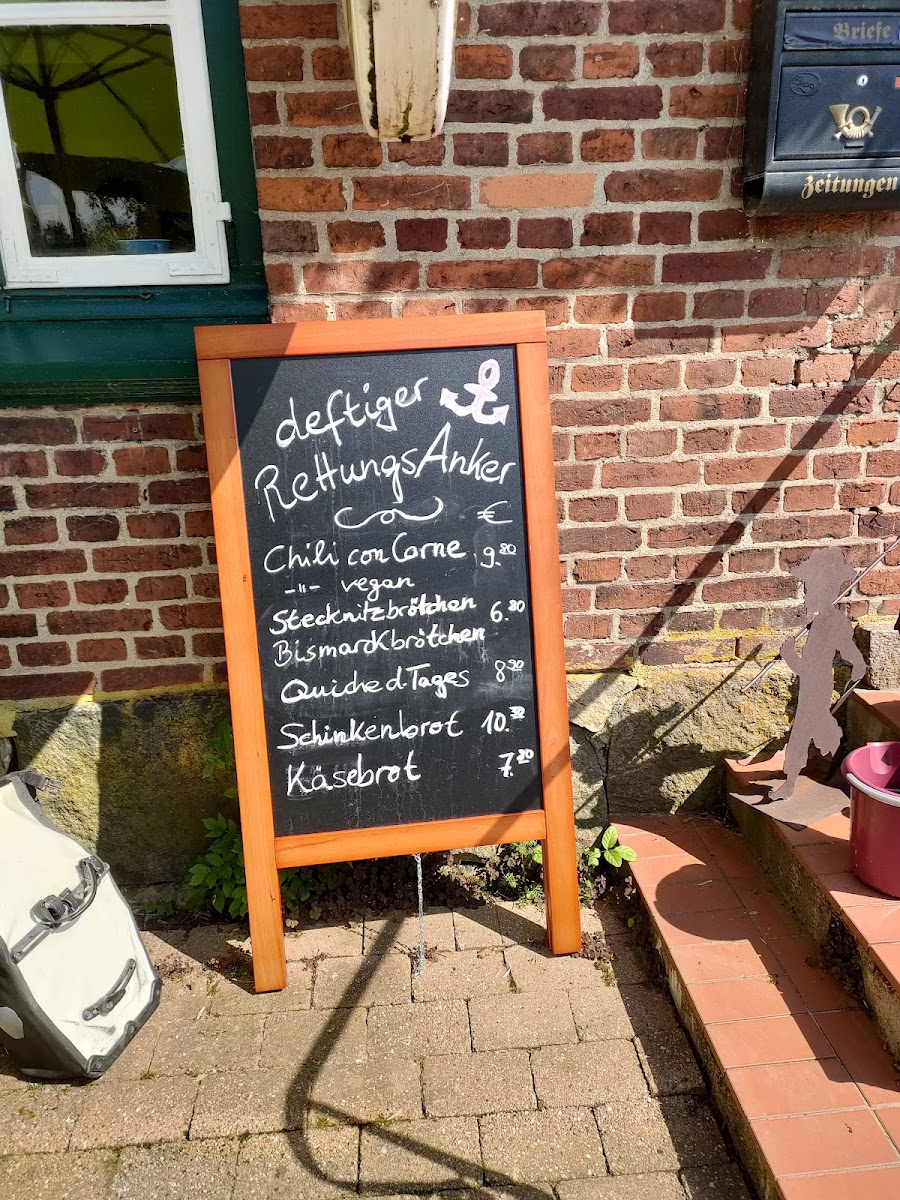 Briefe
Zeitungen
deftiger
RettungsAnker
€
Chili con Carne 9.80
-"- vegan
Stecknitzbrötchen 6.80
Bismarckbrötchen
Quiche d. Tages 8.50
Schinkenbrot 10.50
Käsebrot 7.20